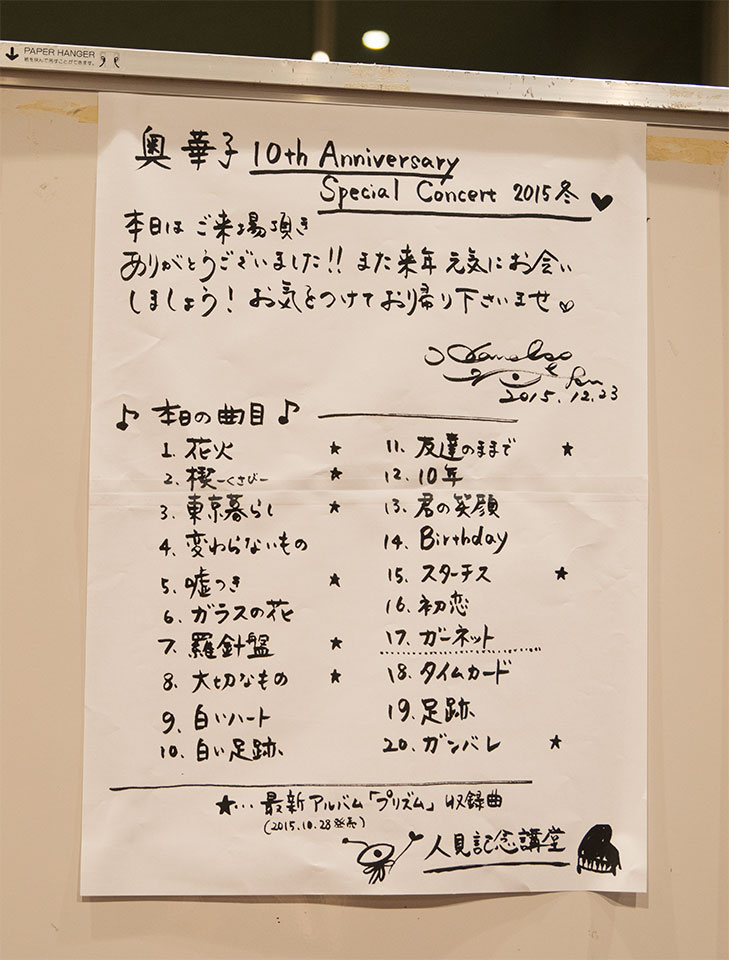 PAPER HANGER
奥 華子 10th Anniversary
Special Concert 2015冬 ♥
本日は ご来場頂き
ありがとうございました!! また来年 元気にお会い
しましょう! お気をつけて お帰り下さいませ♡
2015.12.23
♪ 本日の曲目 ♪
1. 花火 ★
2. 楔-くさび- ★
3. 東京暮らし ★
4. 変わらないもの
5. 嘘つき ★
6. ガラスの花
7. 羅針盤 ★
8. 大切なもの ★
9. 白いハート
10. 白い足跡
11. 友達のままで ★
12. 10年
13. 君の笑顔
14. Birthday
15. スターチス ★
16. 初恋
17. ガーネット
18. タイムカード
19. 足跡
20. ガンバレ ★
★… 最新アルバム「プリズム」収録曲
(2015.10.28発売)
人見記念講堂